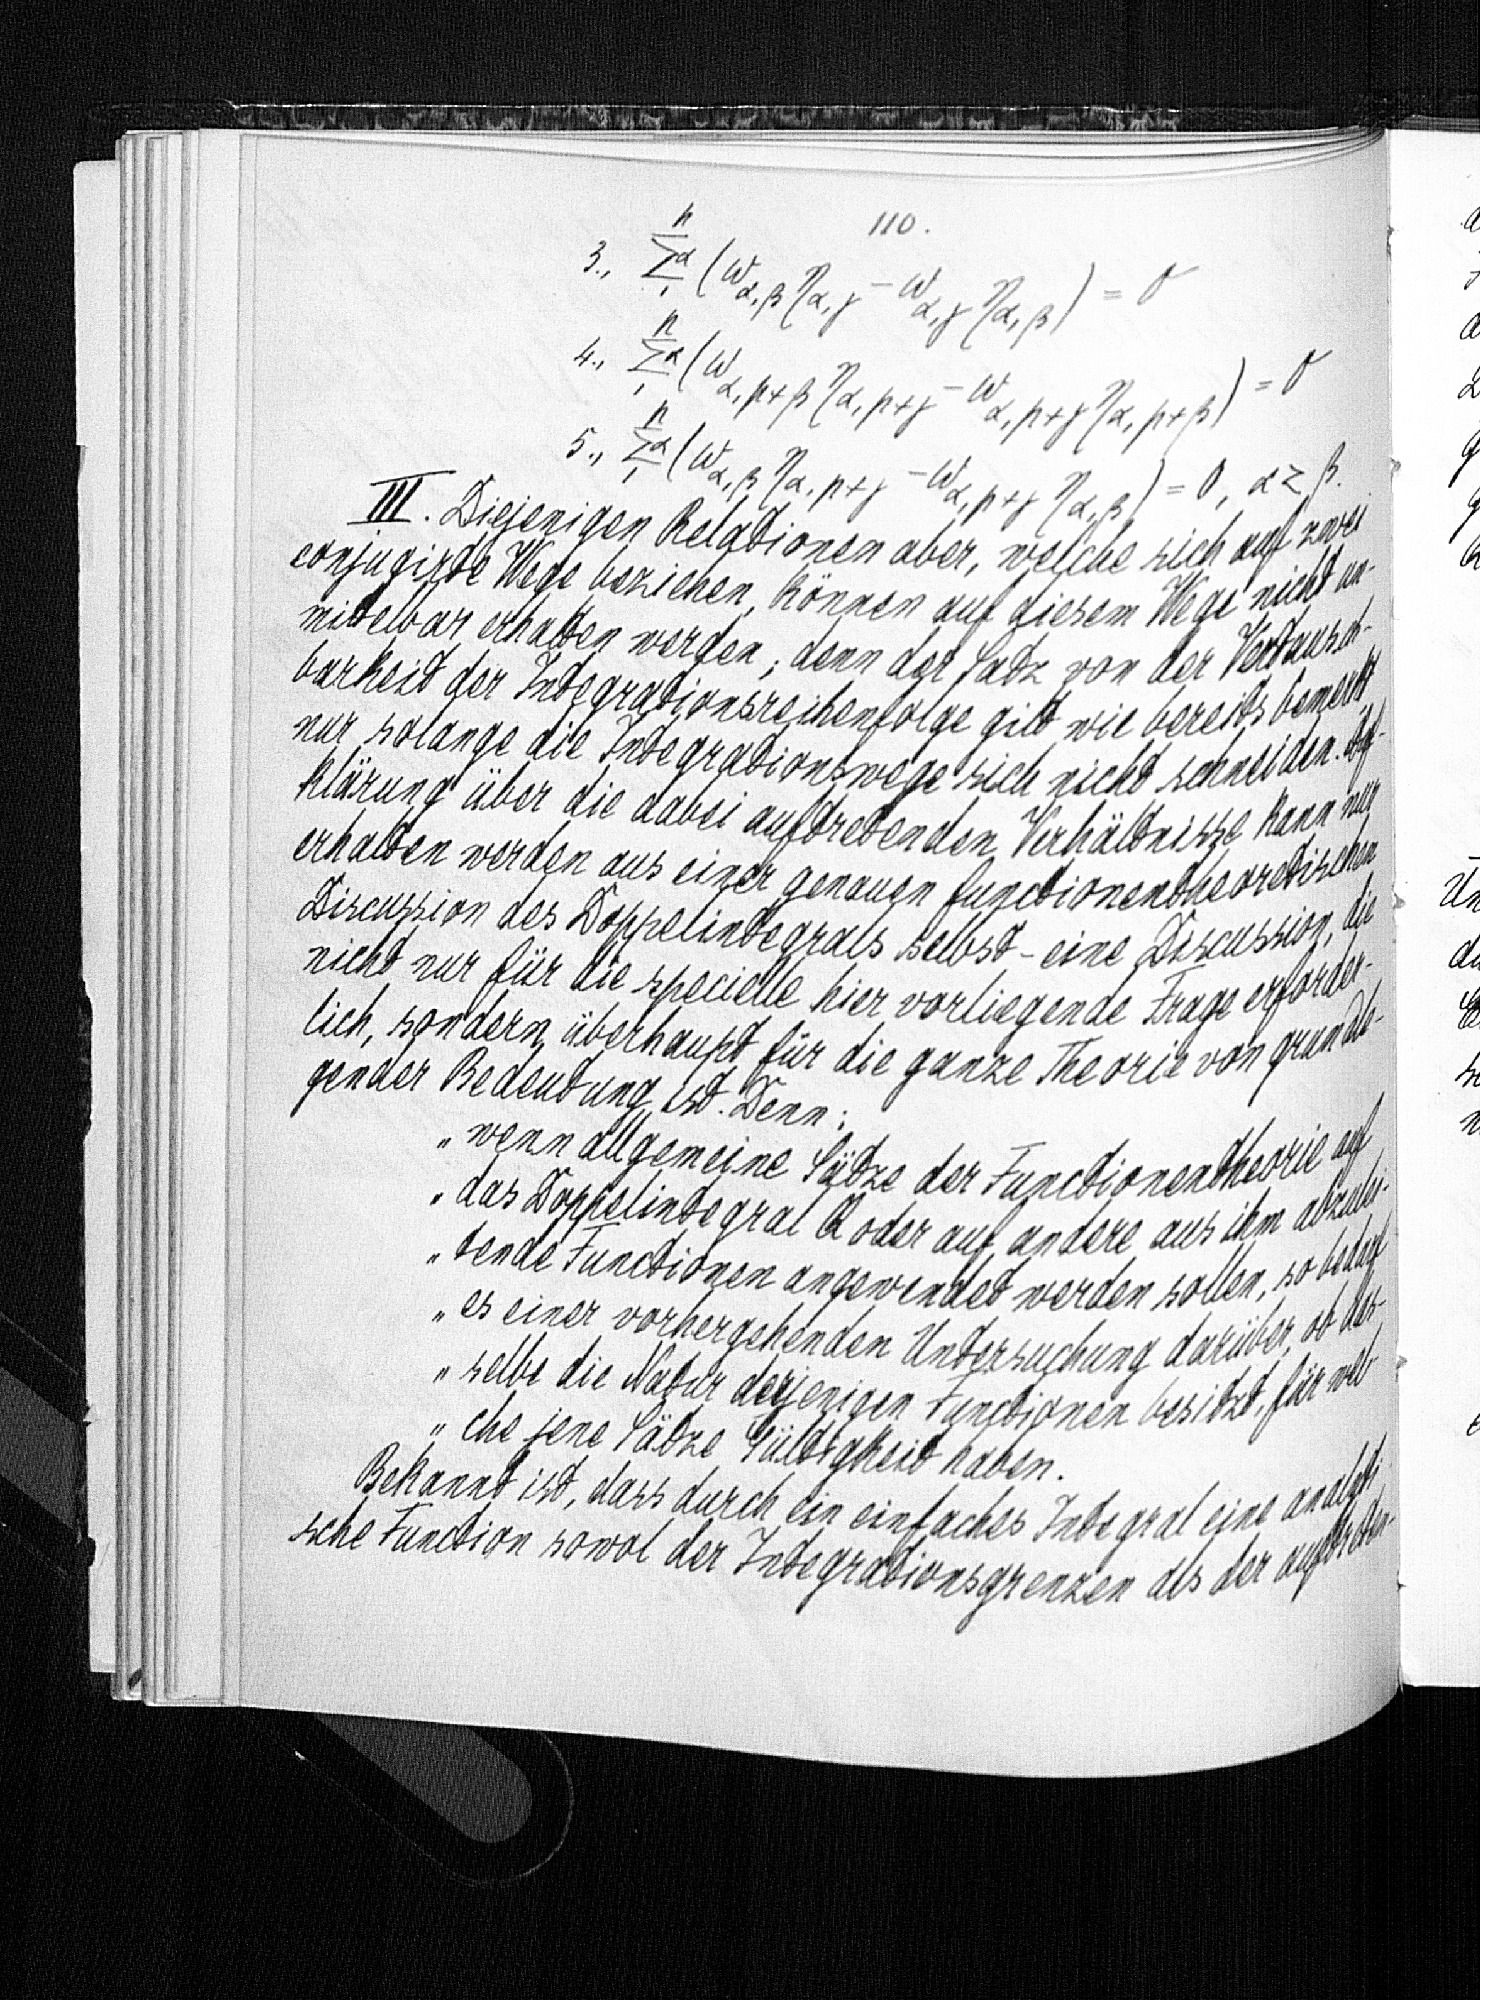 110.
3., Σ₁ᵖα (ω_{α,β} η_{α,γ} - ω_{α,γ} η_{α,β}) = 0
4., Σ₁ᵖα (ω_{α,p+β} η_{α,p+γ} - ω_{α,p+γ} η_{α,p+β}) = 0
5., Σ₁ᵖα (ω_{α,β} η_{α,p+γ} - ω_{α,p+γ} η_{α,β}) = 0, α ≷ β.
III. Diejenigen Relationen aber, welche sich auf zwei
conjugirte Wege beziehen, können auf diesem Wege nicht un-
mittelbar erhalten werden; denn der Satz von der Vertausch-
barkeit der Integrationsreihenfolge gilt wie bereits bemerkt,
nur solange die Integrationswege sich nicht schneiden. Auf-
klärung über die dabei auftretenden Verhältnisse kann nur
erhalten werden aus einer genauen functionentheoretischen
Discussion des Doppelintegrals selbst - eine Discussion, die
nicht nur für die specielle hier vorliegende Frage erforder-
lich, sondern überhaupt für die ganze Theorie von grundle-
gender Bedeutung ist. Denn:
„ wenn allgemeine Sätze der Functionentheorie auf
„ das Doppelintegral Q oder auf andere aus ihm abzulei-
„ tende Functionen angewendet werden sollen, so bedarf
„ es einer vorhergehenden Untersuchung darüber, ob das-
„ selbe die Natur derjenigen Functionen besitzt, für wel-
„ che jene Sätze Gültigkeit haben.
Bekannt ist, dass durch ein einfaches Integral eine analyti-
sche Function sowol der Integrationsgrenzen als der auftreten-